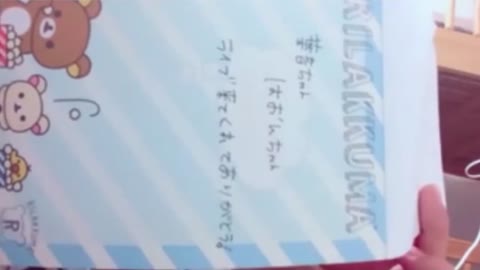 RILAKKUMA
葉音ちゃん
しおんちゃん
ライブ来てくれてありがとう
R